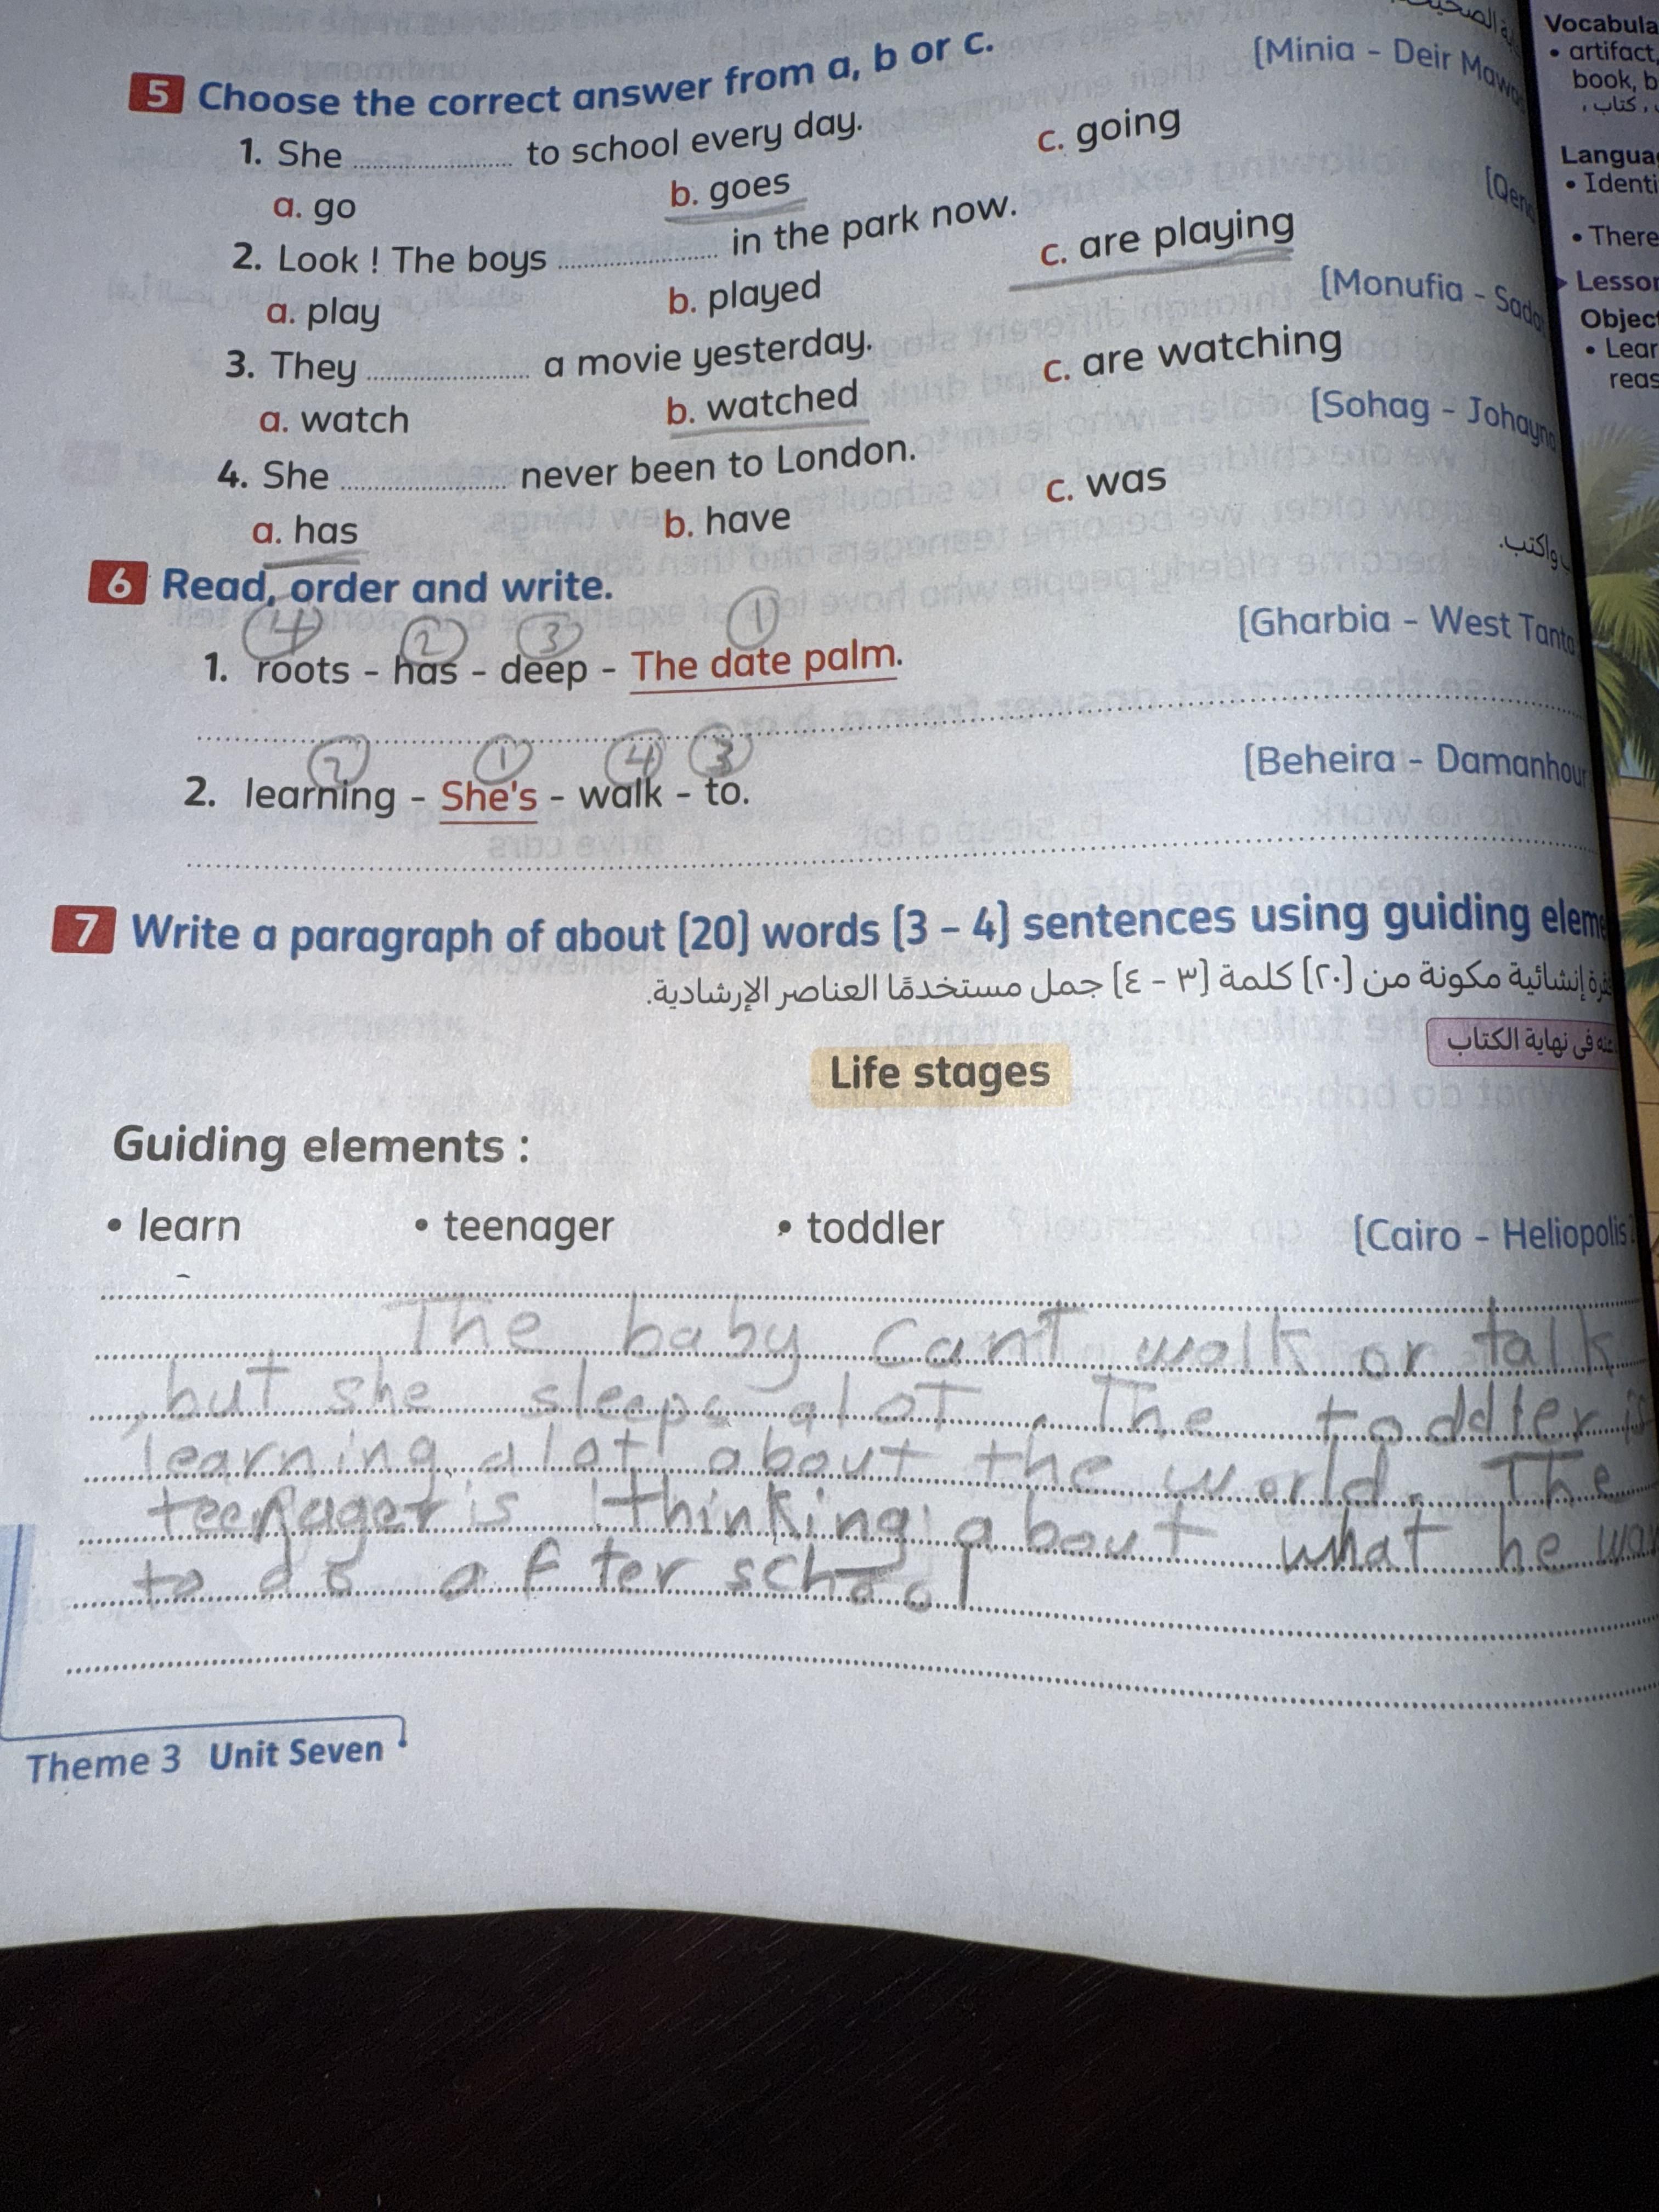 5 Choose the correct answer from a, b or c.
[Minia - Deir
1. She ........ to school every day.
a. go b. goes c. going
2. Look ! The boys ........ in the park now.
a. play b. played c. are playing
3. They ........ a movie yesterday.
[Monufia -
a. watch b. watched c. are watching
4. She ........ never been to London.
[Sohag -
a. has b. have c. was
6 Read, order and write.
واكتب.
4 2 3 1
1. roots - has - deep - The date palm.
[Gharbia - West
2 1 4 3
2. learning - She's - walk - to.
[Beheira - Damanhour
7 Write a paragraph of about [20] words [3 - 4] sentences using guiding
إنشائية مكونة من [٢٠] كلمة [٣ - ٤] جمل مستخدمًا العناصر الإرشادية.
فى نهاية الكتاب
Life stages
Guiding elements :
• learn • teenager • toddler [Cairo - Heliopolis]
The baby can't walk or talk
, but she sleeps a lot. The toddler is
learning a lot about the world. The
teenager is thinking about what he
to do after school
Theme 3 Unit Seven
• artifact,
book,
كتاب ،
• There